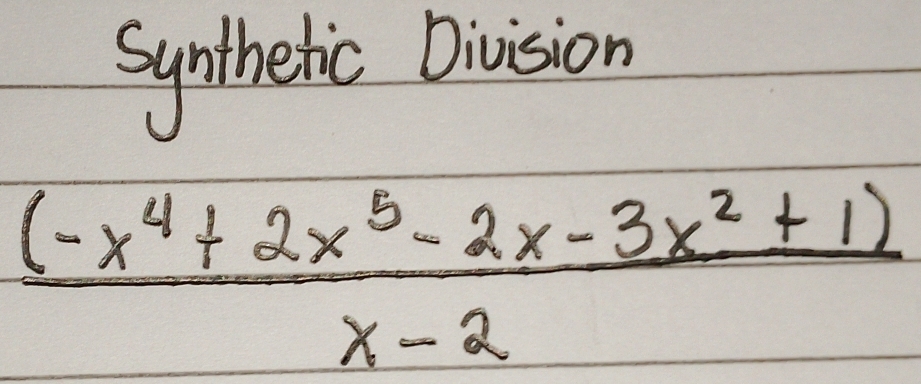 Synthetic Division
(-x⁴ + 2x⁵ - 2x - 3x² + 1)
x - 2